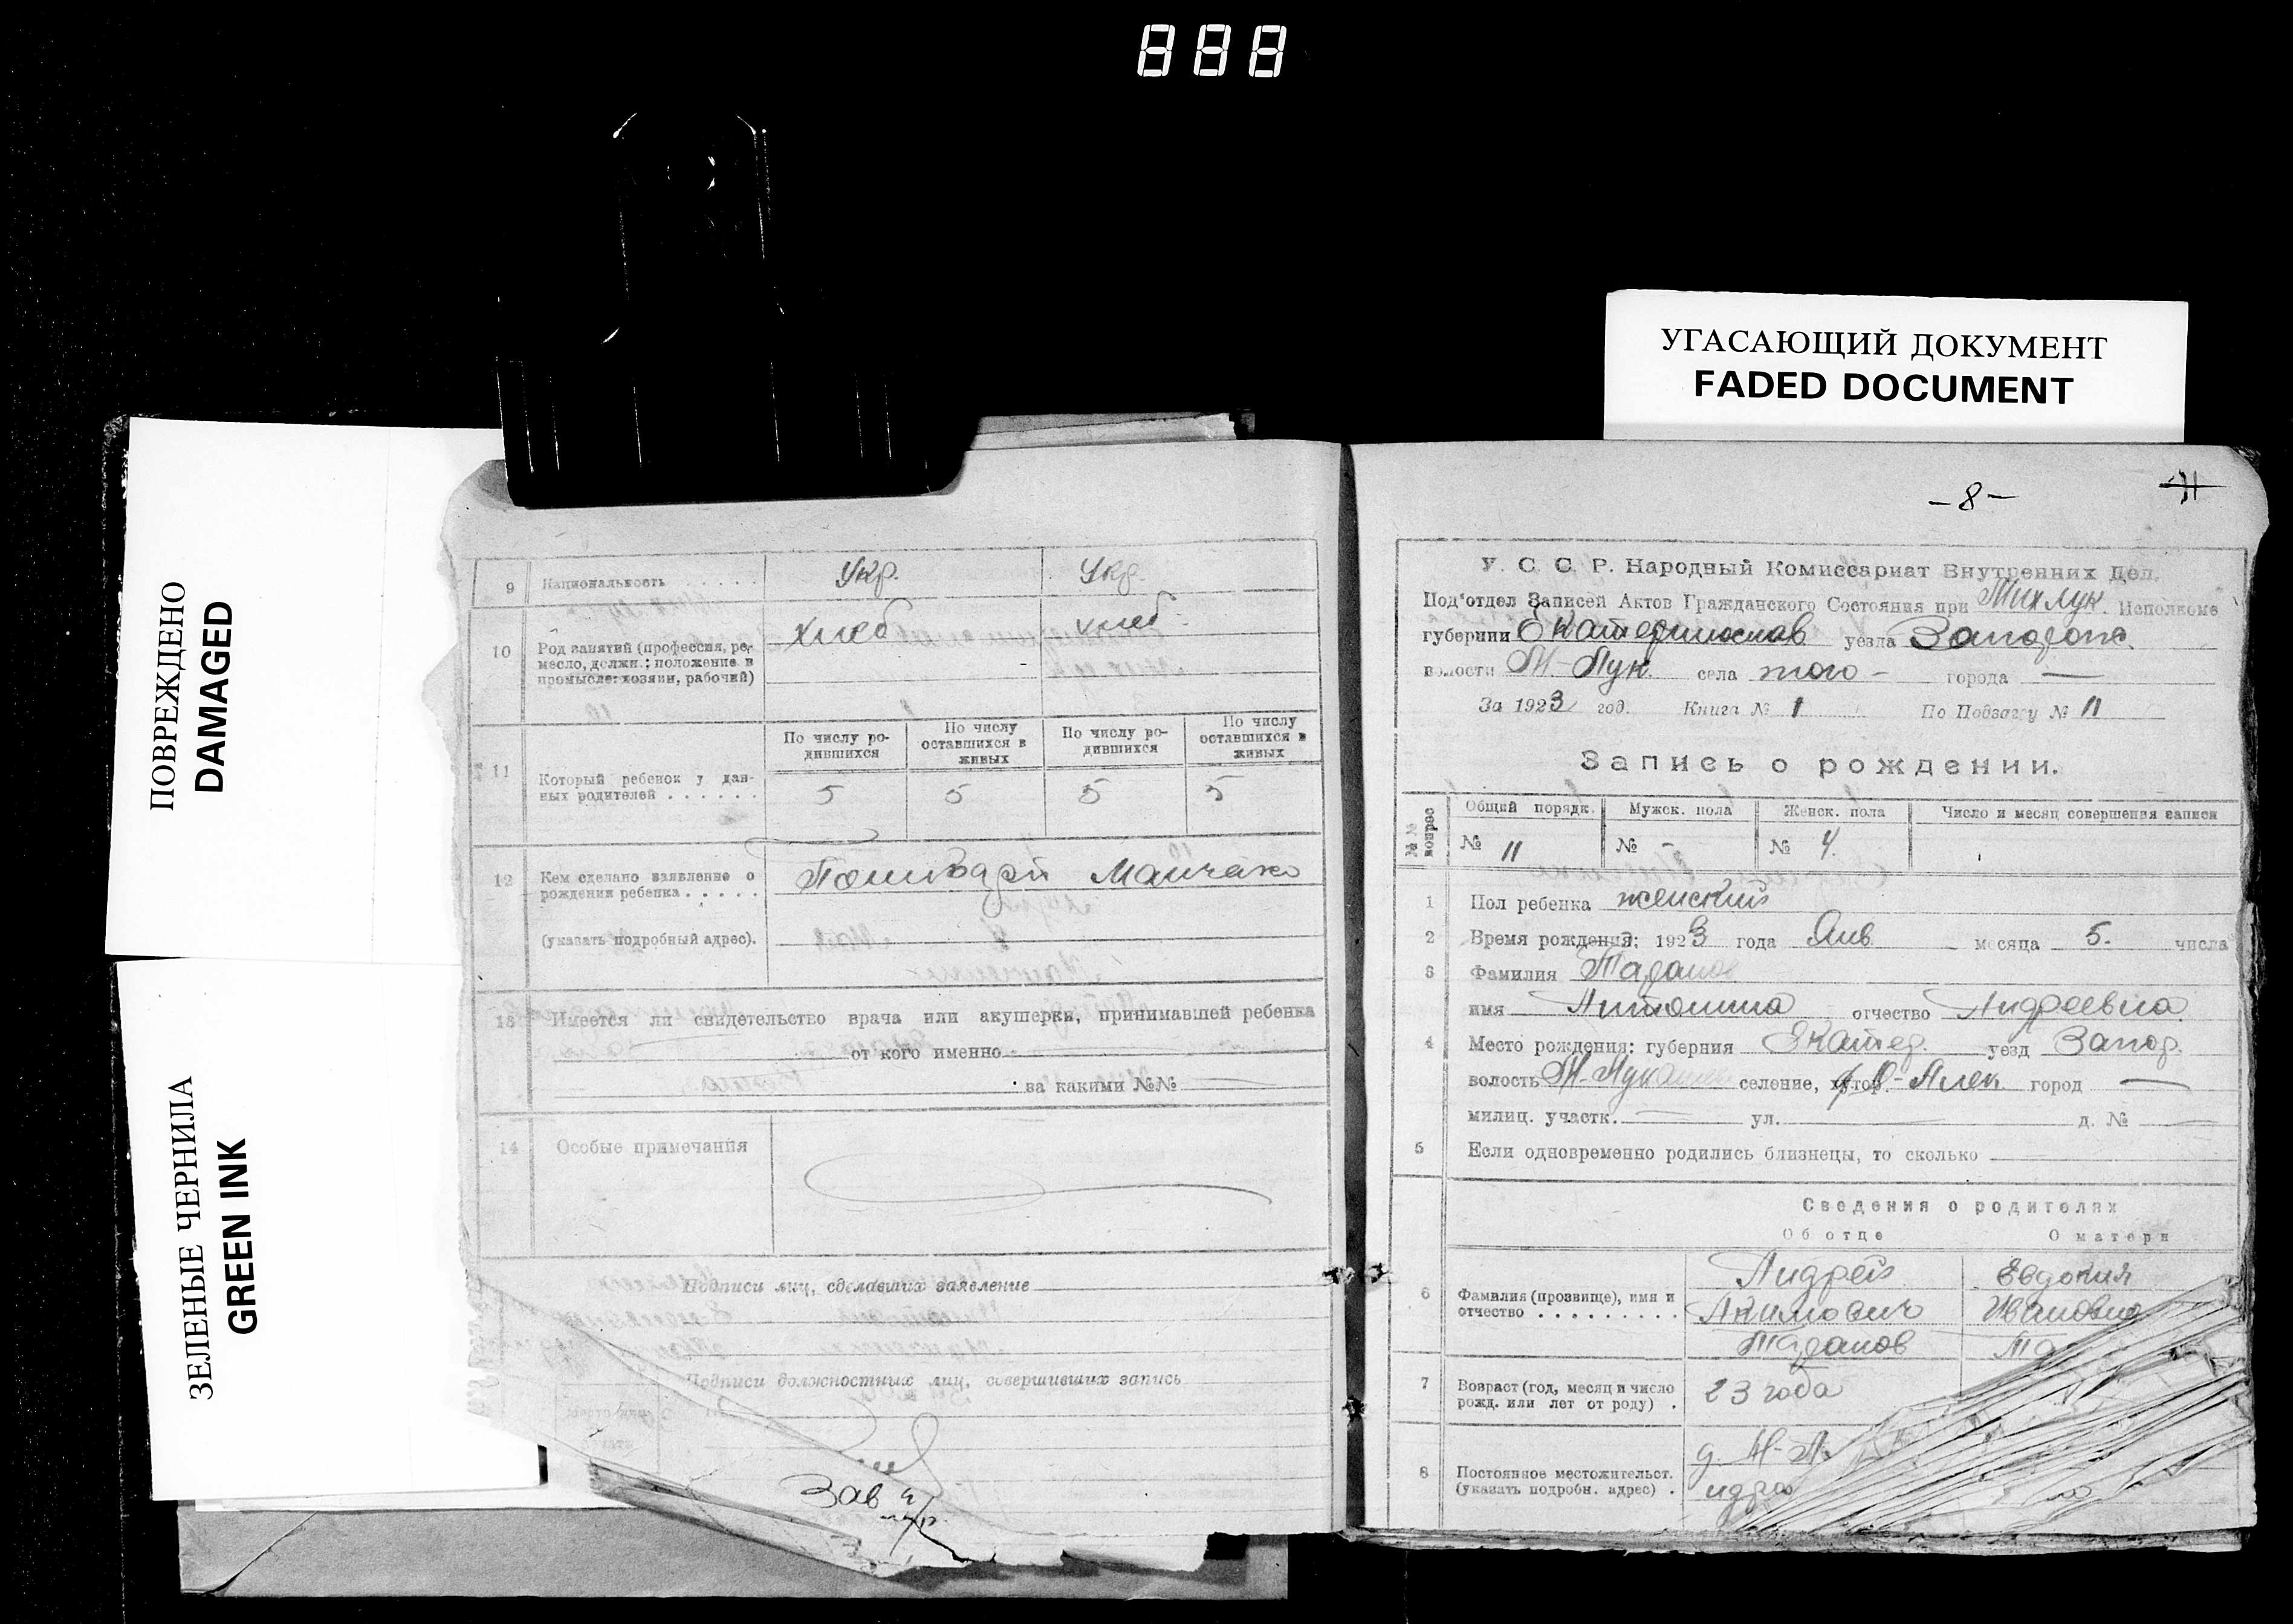 888
ПОВРЕЖДЕНО
DAMAGED
ЗЕЛЕНЫЕ ЧЕРНИЛА
GREEN INK
УГАСАЮЩИЙ ДОКУМЕНТ
FADED DOCUMENT
9 Национальность . . . . . Укр. Укр.
10 Род занятий (профессия, ре-
месло, должн.; положение в
промысле: хозяин, рабочий)
Хлеб хлеб
По числу ро-
дившихся
По числу
оставшихся в
живых
По числу ро-
дившихся
По числу
оставшихся в
живых
11 Который ребенок у дан-
ных родителей . . . . . . 5 5 5 5
12 Кем сделано заявление о
рождении ребенка . . . . .
(указать подробный адрес).
13 Имеется ли свидетельство врача или акушерки, принимавшей ребенка
от кого именно
за какими №№
14 Особые примечания
Подписи лиц, сделавших заявление
Подписи должностных лиц, совершивших запись
Зав
- 8 -
11
У. С. С. Р. Народный Комиссариат Внутренних Дел.
Под'отдел Записей Актов Гражданского Состояния при Михлук. Исполкоме
губернии Екатеринослав уезда Запорож.
волости М-Лук. села того - города —
За 1923 год. Книга № 1 По Подзагсу № 11
Запись о рождении.
№№ вопрос
Общий порядк. Мужск. пола Женск. пола Число и месяц совершения записи
№ 11 № - № 4.
1 Пол ребенка женский
2 Время рождения: 1923 года Янв месяца 5. числа
3 Фамилия Таранов
имя Антонина отчество Андреевна
4 Место рождения: губерния Екатер. уезд Запор.
волость М-Лукашев селение, хутор -Алек город —
милиц. участк. — ул. — д. № —
5 Если одновременно родились близнецы, то сколько
Сведения о родителях
Об отце О матери
6 Фамилия (прозвище), имя и
отчество . . . . . . . . .
Андрей Евдокия
Акимович Ивановна
Таранов Та
7 Возраст (год, месяц и число
рожд. или лет от роду) . 23 года
8 Постоянное местожительст.
(указать подробн. адрес) .